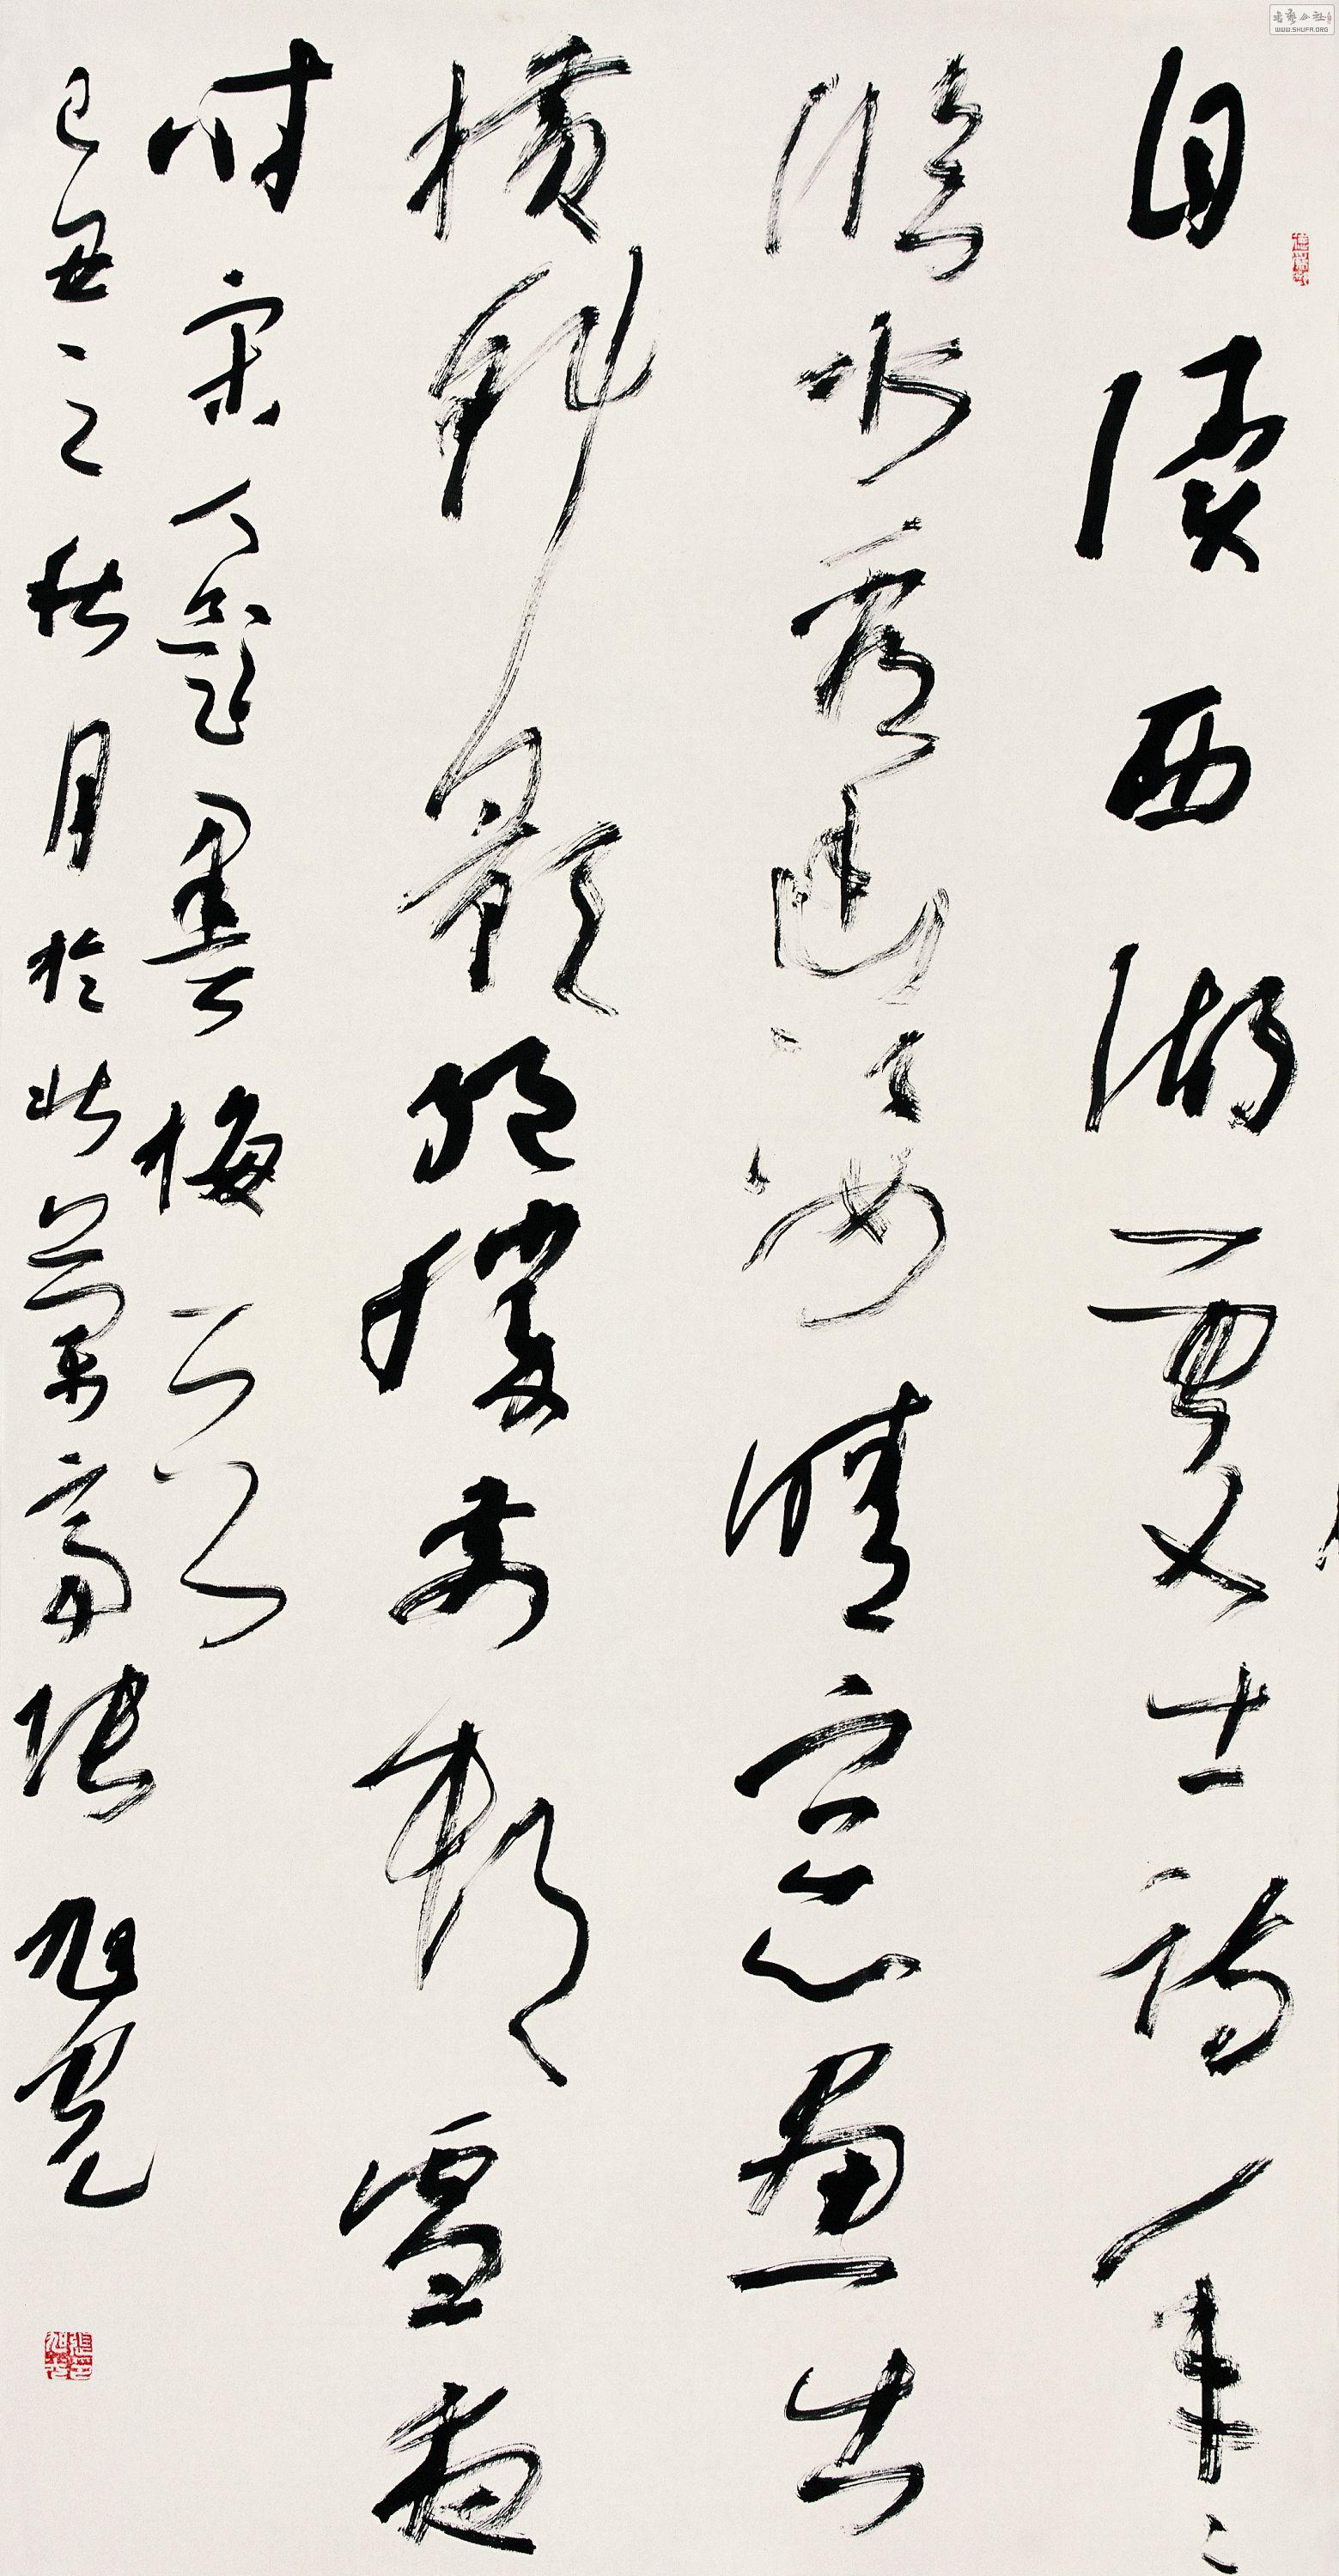 自读西湖处士诗年々
临水看幽姿晴窗画出
横斜影绝胜前村雪夜
时宋人题墨梅一首
己丑之秋月於北兰亭张旭光
WWW.SHUFA.ORG